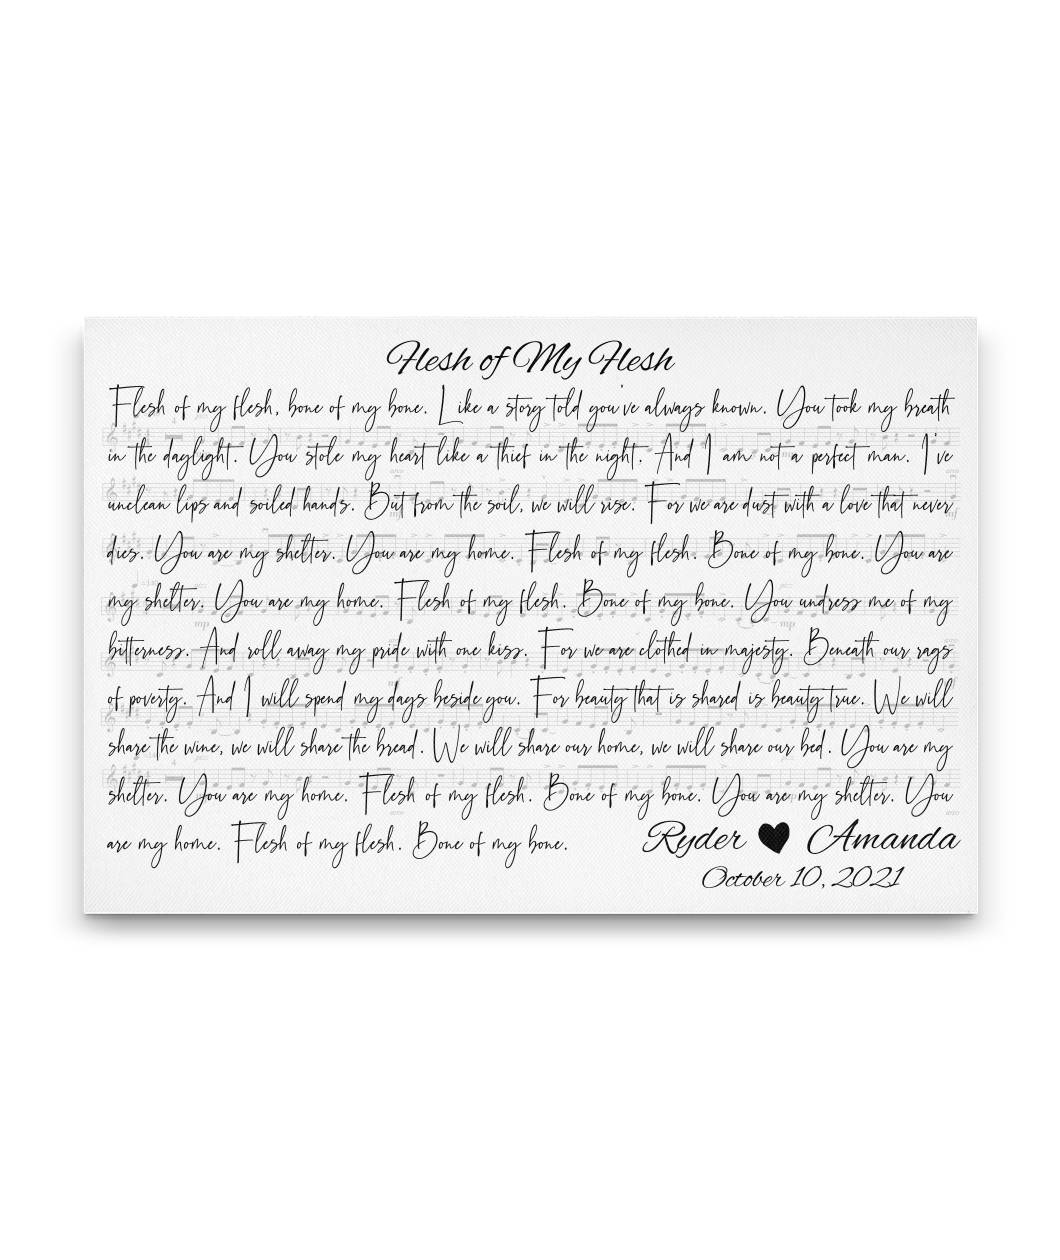 Flesh of My Flesh
Flesh of my flesh, bone of my bone. Like a story told you've always known. You took my breath
in the daylight. You stole my heart like a thief in the night. And I am not a perfect man. I've
unclean lips and soiled hands. But from the soil, we will rise. For we are dust with a love that never
dies. You are my shelter. You are my home. Flesh of my flesh. Bone of my bone. You are
my shelter. You are my home. Flesh of my flesh. Bone of my bone. You undress me of my
bitterness. And roll away my pride with one kiss. For we are clothed in majesty. Beneath our rags
of poverty. And I will spend my days beside you. For beauty that is shared is beauty true. We will
share the wine, we will share the bread. We will share our home, we will share our bed. You are my
shelter. You are my home. Flesh of my flesh. Bone of my bone. You are my shelter. You
are my home. Flesh of my flesh. Bone of my bone.
Ryder ♥ Amanda
October 10, 2021